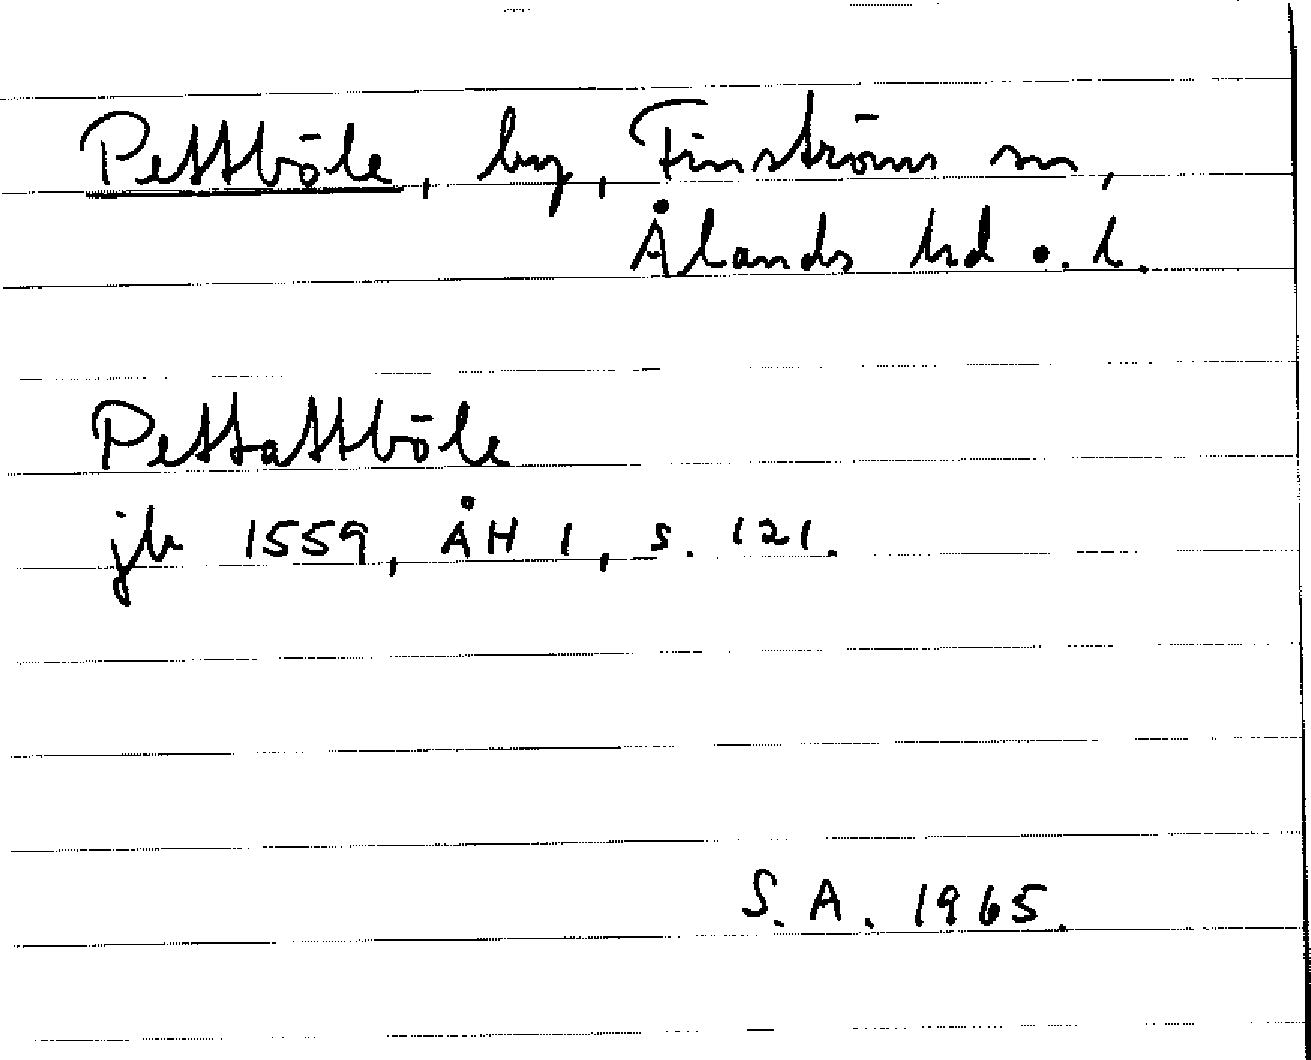 Pettböle, by, Finströms sn,
Ålands hd o. l.
Pettattböle
jb 1559, ÅH 1, s. 121.
S. A. 1965.